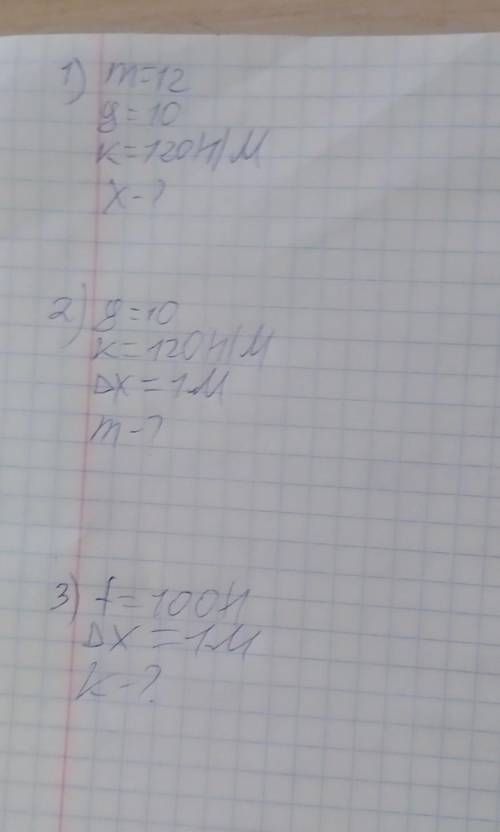 1) m=12
g=10
k=120Н/М
X-?
2) g=10
k=120Н/М
ΔX=1М
m-?
3) f=100Н
ΔX=1М
k-?